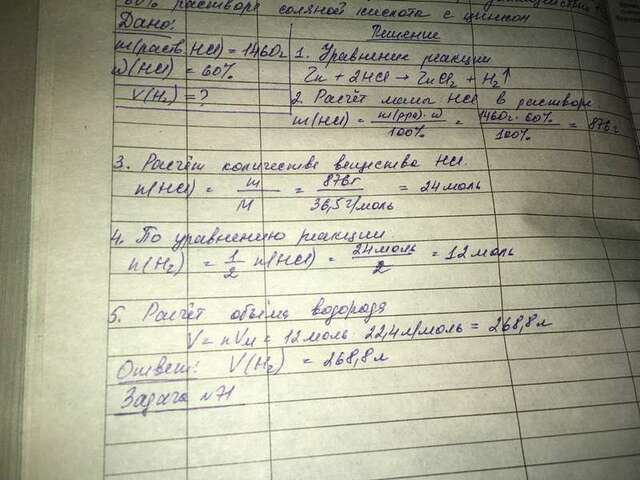 60% раствора соляной кислоты с цинком
Дано:
Решение
m(раств. HCl) = 1460г
1. Уравнение реакции
ω(HCl) = 60%
Zn + 2HCl → ZnCl₂ + H₂↑
V(H₂) = ?
2. Расчёт массы HCl в растворе
m(HCl) = m(рра)·ω / 100% = 1460г·60% / 100% = 876г
3. Расчёт количества вещества HCl.
n(HCl) = m / M = 876г / 36,5г/моль = 24 моль
4. По уравнению реакции
n(H₂) = 1/2 n(HCl) = 24моль / 2 = 12 моль
5. Расчёт объёма водорода
V = nVм = 12 моль · 22,4 л/моль = 268,8 л
Ответ: V(H₂) = 268,8 л
Задача №71